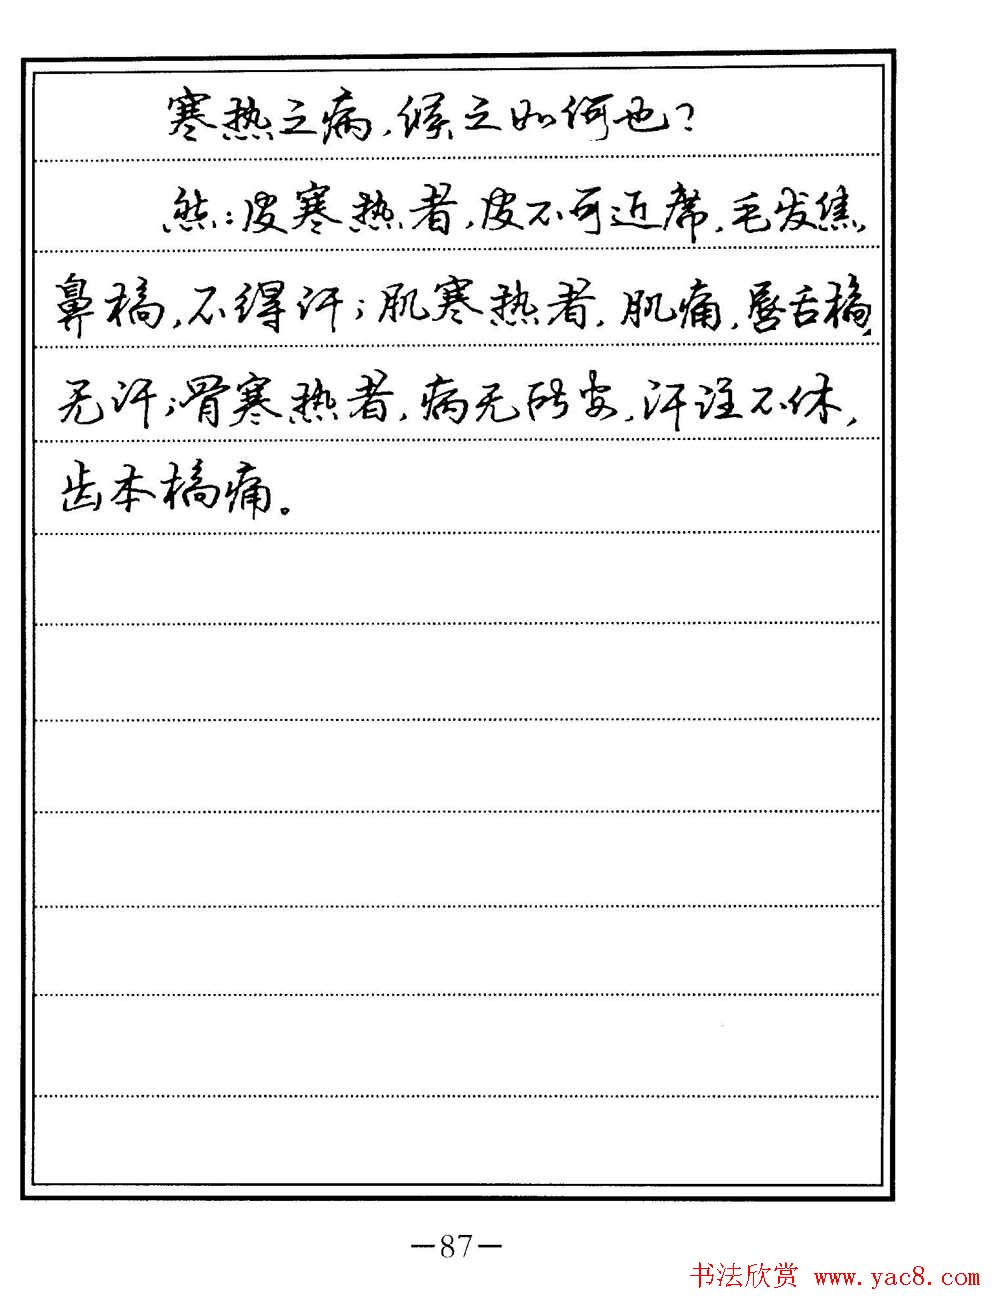 寒热之病,候之如何也?
然:皮寒热者,皮不可近席,毛发焦,
鼻槁,不得汗;肌寒热者,肌痛,唇舌槁,
无汗;骨寒热者,病无所安,汗注不休,
齿本槁痛。
—87—
书法欣赏 www.yac8.com